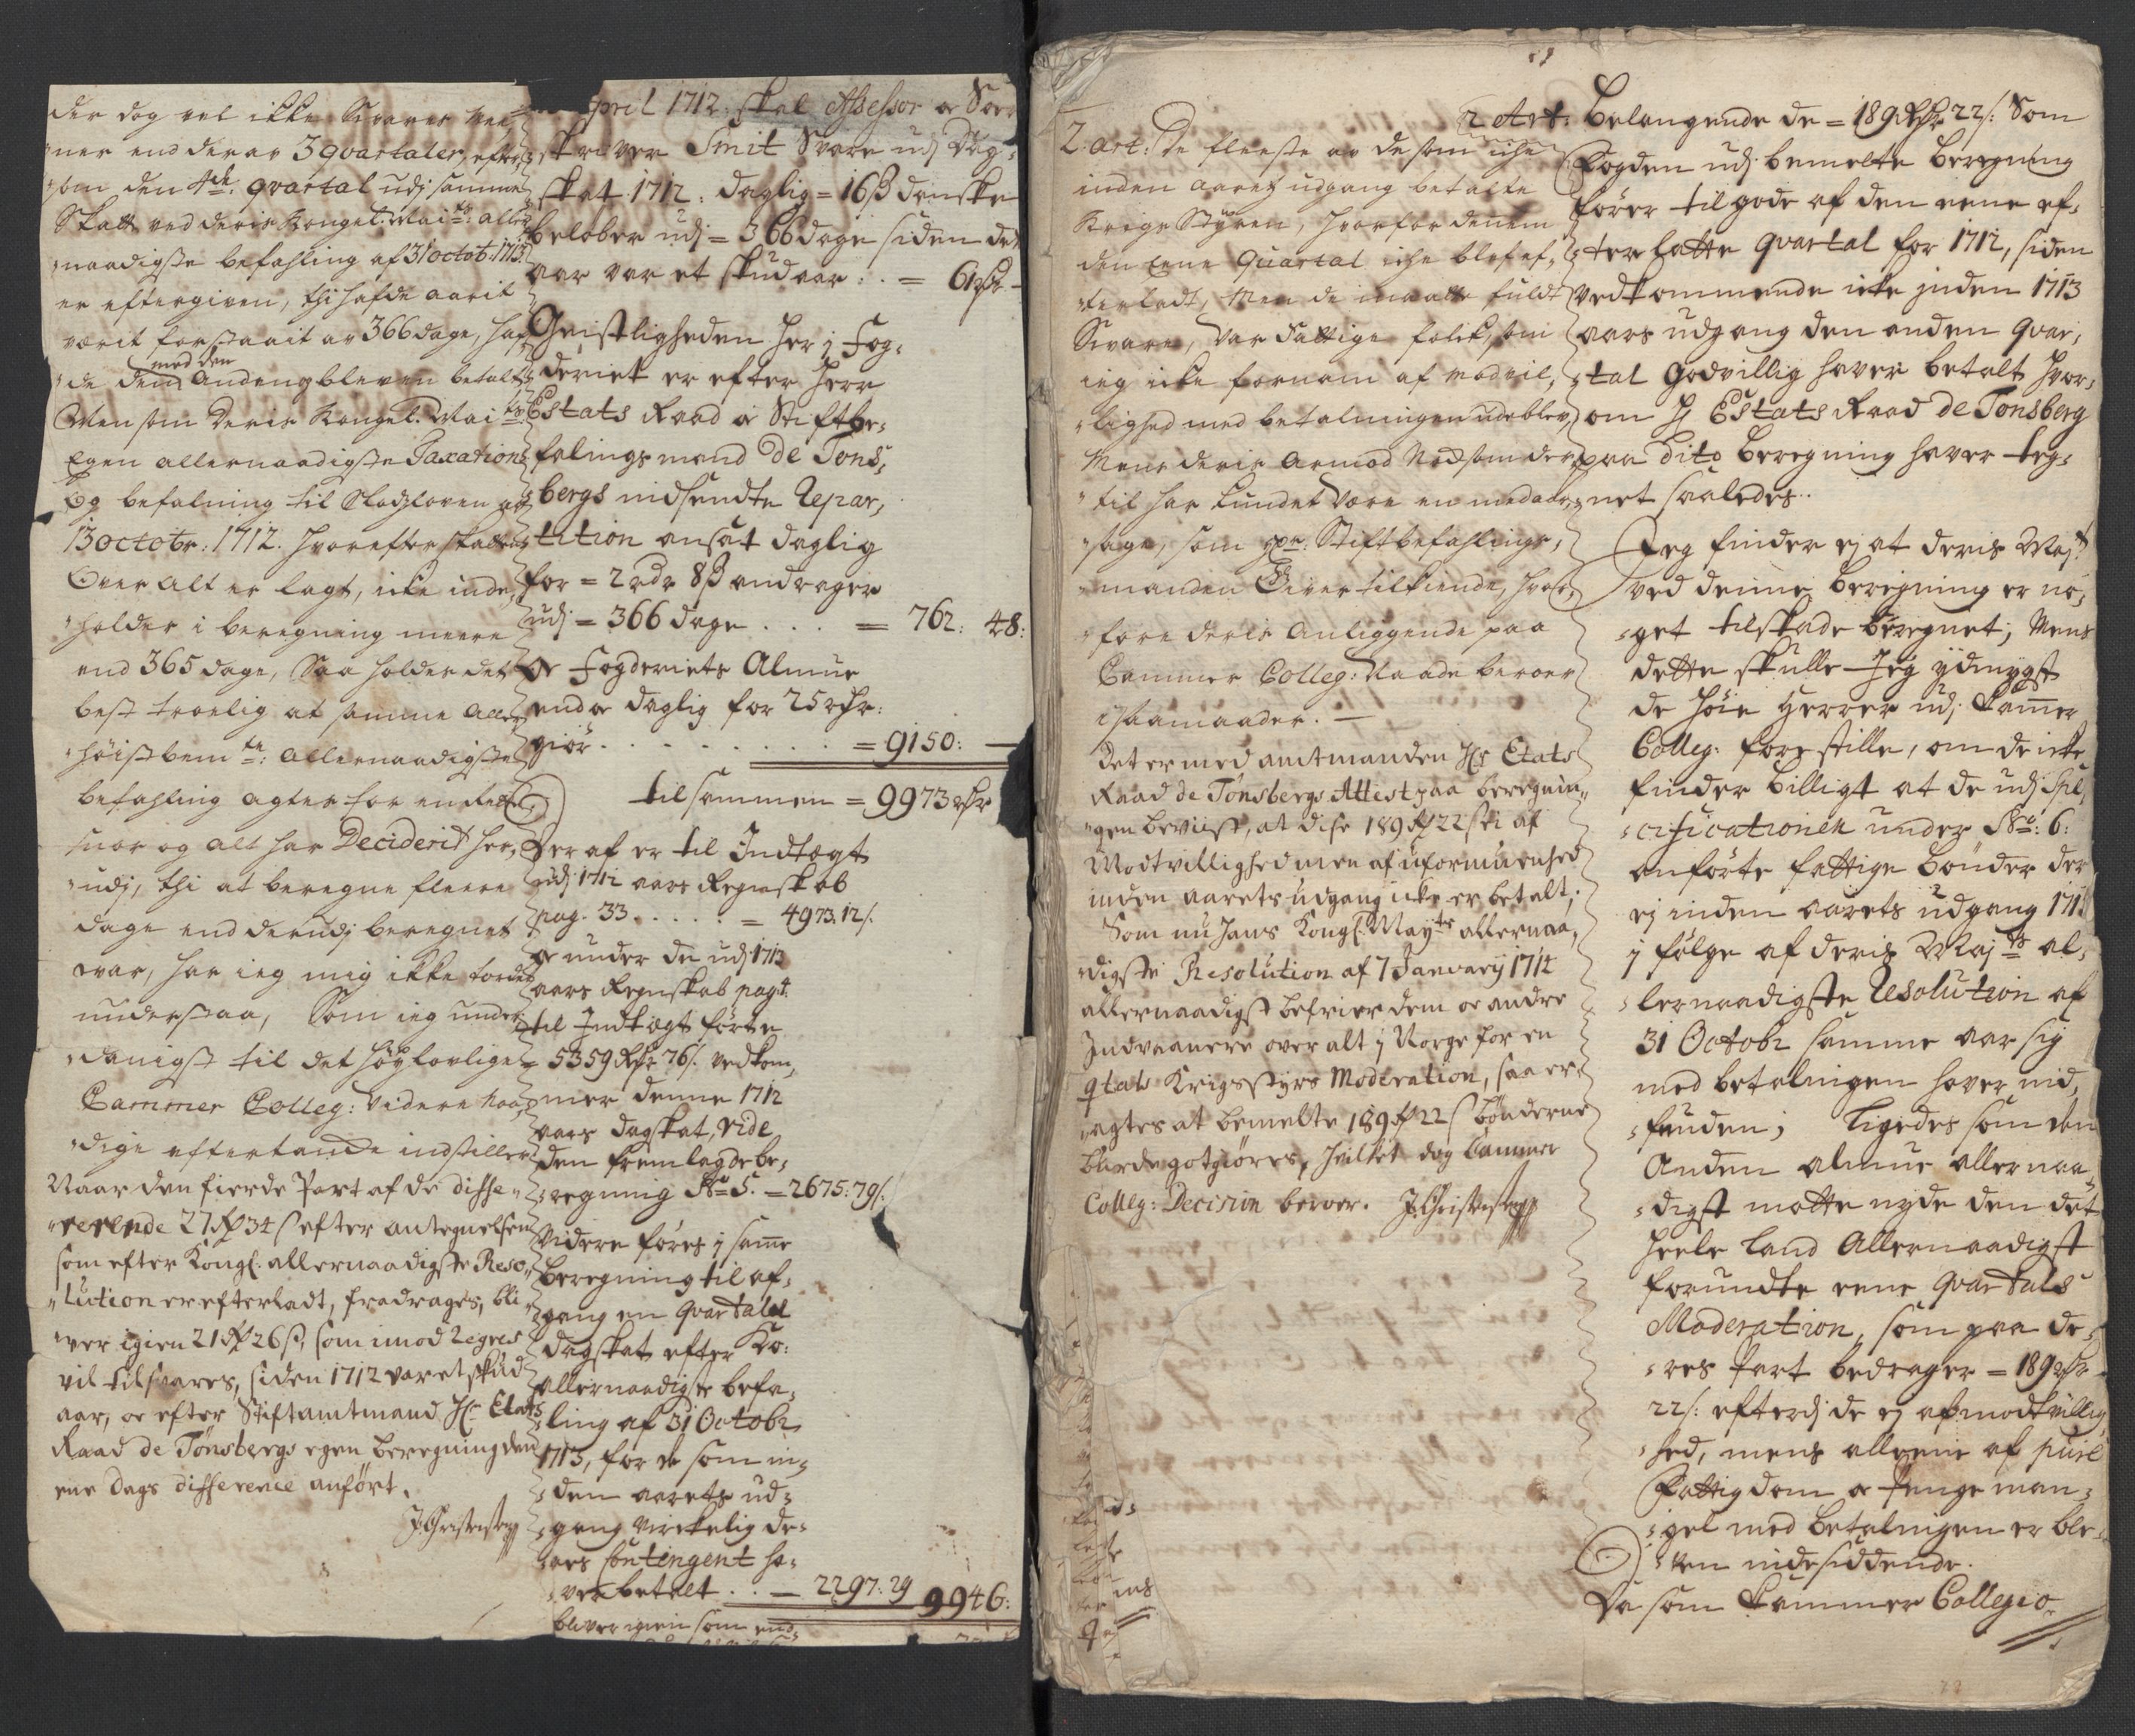 der dog vel ikke Svares mee-
"ner end derav 3 qvartaler, efter-
"som den 4de: qvartal udj samme
Skatt ved deris Kongel: Mai ts: aller
"naadigste befahling af 31 octob: 1713
er eftergiven, thi hafde aarit
værit forstaait av 366 dage, haf-
med den
"de dend andeng bleven betalt,
Men som deris Kongel. Mai ts
Egen allernaadigste Taxations
Og befalning til Slodzloven af
13 octobr: 1712. hvorefter skatten
Over alt er lagt, icke inde-
"holder i beregning meere
end 365 dage, Saa holder det
best troelig at samme Aller
"høistbem te: allernaadigste
befahling agter for
og alt har Deciderit her-
"udj, thi at beregne fleere
dage end derudj beregnet
var, har ieg mig ikke torde
understaa, Som ieg under-
"danigst til det høylovlige
Cammer Colleg: videre naa-
"dige eftertancke indstiller
Naar den fierde Part af de diffe-
"rerende 27 Rd 34 s efter antegnelsen
som efter Kongl: allernaadigste Reso-
"lution er efterladt, fradrages, bli-
"ver igien 21 Rd 26 s, som imod 2egnes
vil tilsvares, siden 1712 var et skud
aar, oc efter Stiftamtmand Hr Etats
Raad de Tønsbergs egen beregning den
ene dags difference anført.
J: Christensen
April 1712. skal Assessor oc Sor-
skriver Smit Svare udj Dag-
skat 1712: daglig = 16 s danske
beløber udj = 366 dage siden det
aar var et skudaar : . = 61 Rdr -
Geistligheden her j Fog-
deriet er efter Herr
Estats Raad oc Stiftbe-
falings mand de Tøns-
bergs nidsendte Repar-
tition ansat daglig
for = 2 rdr 8 s andrager
udj = 366 dage . . . = 762: 48:
Oc Fogderiets Almue
end oc daglig for 25 rdr:
giør . . . . . . . . . = 9150: —
tilsammen = 9973 rdr
Der af er til Indtægt
udj 1712 aars Regnskab
pag. 33 . . . . . = 4973. 12 s.
oc under de udj 1713
aars Regnskab pag:
til Indtægt førte
5359 Rdr 76 s. vedkom-
mer denne 1712
aars dagskat, vide
den fremlagde be-
regning No 5. = 2675: 79 s:
Videre føres j samme
beregning til af-
gang en Qvartals
dagskat efter Ko:
allernaadigste befa-
ling af 31 Octobr
1713, for de som in-
den aarets ud-
gang virckelig de-
res Contingent ha-
ver betalt . . = 2297: 29 9946:
bliver igien som end-
2. art: De fleeste av de som icke
inden aarets udgang betalte
Krigs Styren, hvorfor denem
den Eene Quartal icke blef ef-
"terladt, Men de maatte fuldt
Svare, var fattige folck, som
ieg icke fornam af modvil-
"lighed med betalningen udeblev,
Mens deris armod
til har kundet være en
"sage, som hr: Stiftbefahlings-
"manden Giver tilkiende, hvor-
"fore deris anliggende paa
Cammer Colleg: Naade beroer
isaamaader. —
Det er med amtmanden Hr: Etats
Raad de Tønsbergs Attest paa beregnin-
"gen beviist, at disse 189 Rd 22 s ei af
Modtvillighed men af uformuenhed
inden aarets udgang icke er betalt;
Som nu Hans Kongl: Mayts allernaa-
"digste Resolution af 7 Janvarij 1714
allernaadigst befrier dem oc andre
Indvaanere over alt j Norge for en
qtals Krigsstyrs Moderation, saa er-
"agtes at bemelte 189 Rd 22 s bønderne
burde gotgiøres, hvilket dog Cammer
Colleg: Decision beroer. J: Christensen
2 Art: Belangende de = 189 Rdr 22 s: Som
Fogden udj bemelte beregning
fører til gode af den eene ef-
terlatte Qvartal for 1712, siden
vedkommende icke inden 1713
aars udgang den anden qvar-
tal godvillig haver betalt hvor-
om Hr Estats Raad de Tonsberg
paa dito beregning haver teg-
net saaledes..
Jeg finder ej at deris Majt
ved denne beregning er no-
get til skade beregnet; Mens
dette skulle Jeg ydmygst
de høie Herrer udj Cammer
Colleg: forestille, om de icke
finder billigt at de udj Spe-
cificationen under No: 6:
anførte fattige bønder der
ej inden aarets udgang 1713
j følge af deris Majts al-
lernaadigste Resolution af
31 Octobr samme aar sig
med betalingen haver ind-
funden; ligedes som den
Anden almue allernaa-
digst motte nyde den det
heele land Allernaadigst
forundte eene Qvartals
Moderation, som paa de-
res Part bedrager = 189 rdr
22 s: efterdj de ej af modtvillig-
hed, mens alleene af puur
Fattigdom oc Penge man-
gel med betalingen er ble-
ven indesiddende.
Da som Cammer Collegio